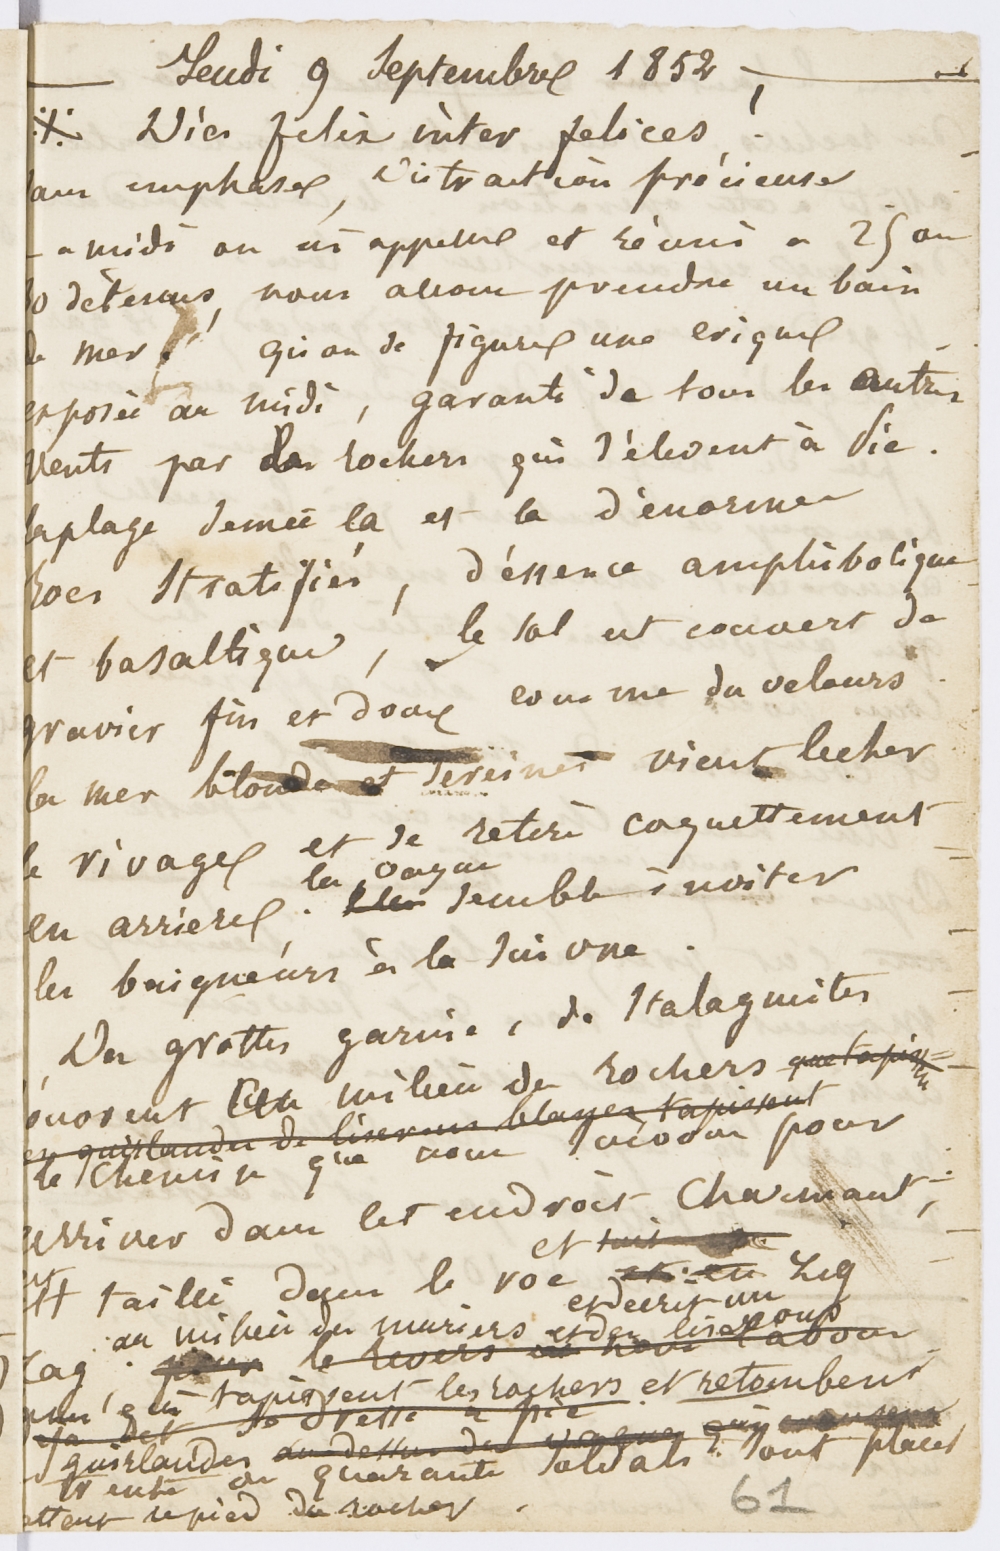 Jeudi 9 Septembre 1852
Dies felix inter felices !
sans emphase, distraction précieuse
a midi on us appelle et réuni a 25 ou
30 détenus, nous allons prendre un bain
de mer ! qu on se figure une crique
exposée au midi, garanti de tous les autres
vents par des rochers qui s'élevent à pic.
la plage semée la et la d'énormes
rocs stratifiés, d'éssence amphibolique
et basaltique, le sol est couvert de
gravier fin et doux comme du velours
la mer blonde et sereine vient lecher
le rivage et se retire coquettement
la vague
en arriere. semble inviter
les baigneurs à la suivre.
Des grottes garnies de stalagmites
ouvrent au milieu de rochers que tapis
en guirlandes de liserons blancs tapissent
le chemin que nous suivons pour
arriver dans cet endroit charmant,
et
est taillé dans le roc et en zig
et decrit un
au milieu des muriers et des liserons
zag. pour le revers
qui tapissent les rochers et retombent
se dresse a pic
guirlandes au dessus des vagues
trente ou quarante soldats sont placés
au pied du rocher.
61